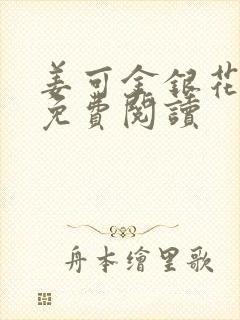 姜可金銀花
免費閱讀
舟本繪里歌